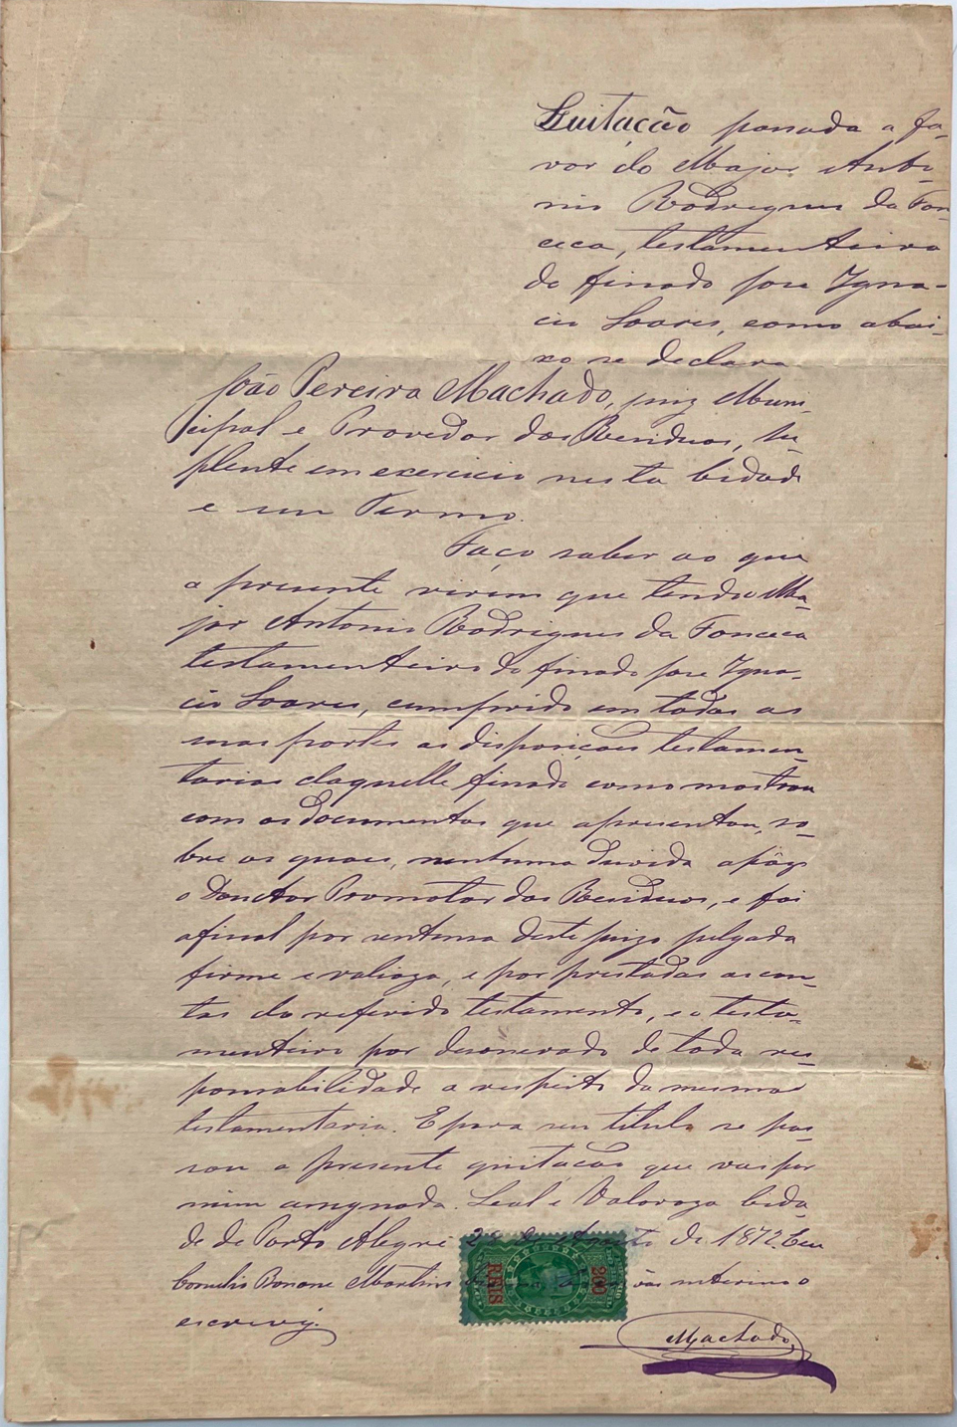 Quitação passada a fa-
vor do Major Anto-
nio Rodrigues da Fon-
ceca, testamenteiro
do finado José Igna-
cio Soares, como abai-
xo se declara
João Pereira Machado, juiz Muni-
cipal e Provedor dos Residuos, su-
plente em exercicio nesta Cidade
e seu Termo.
Faço saber ao que
a presente virem que tendo Ma-
jor Antonio Rodrigues da Fonceca
testamenteiro do finado José Igna-
cio Soares, cumprido em todas as
suas partes as disposições testamen-
tarias daquelle finado como mostrou
com os documentos que apresentou, so-
bre os quaes, nenhuma duvida apôz
o Douctor Promotor dos Residuos, e foi
afinal por sentensa deste juizo julgada
firme e valioza, e por prestadas as con-
tas do referido testamento, e o testa-
menteiro por desonerado de toda res-
ponsabilidade a respeito da mesma
testamentaria. E para seu titulo se pas-
sou a presente quitação que vai por
mim assignada. Leal e Valoroza Cida-
de de Porto Alegre de Agosto de 1872. Eu
Cornelio Martins interino o
escrevy.
200
REIS
Machado